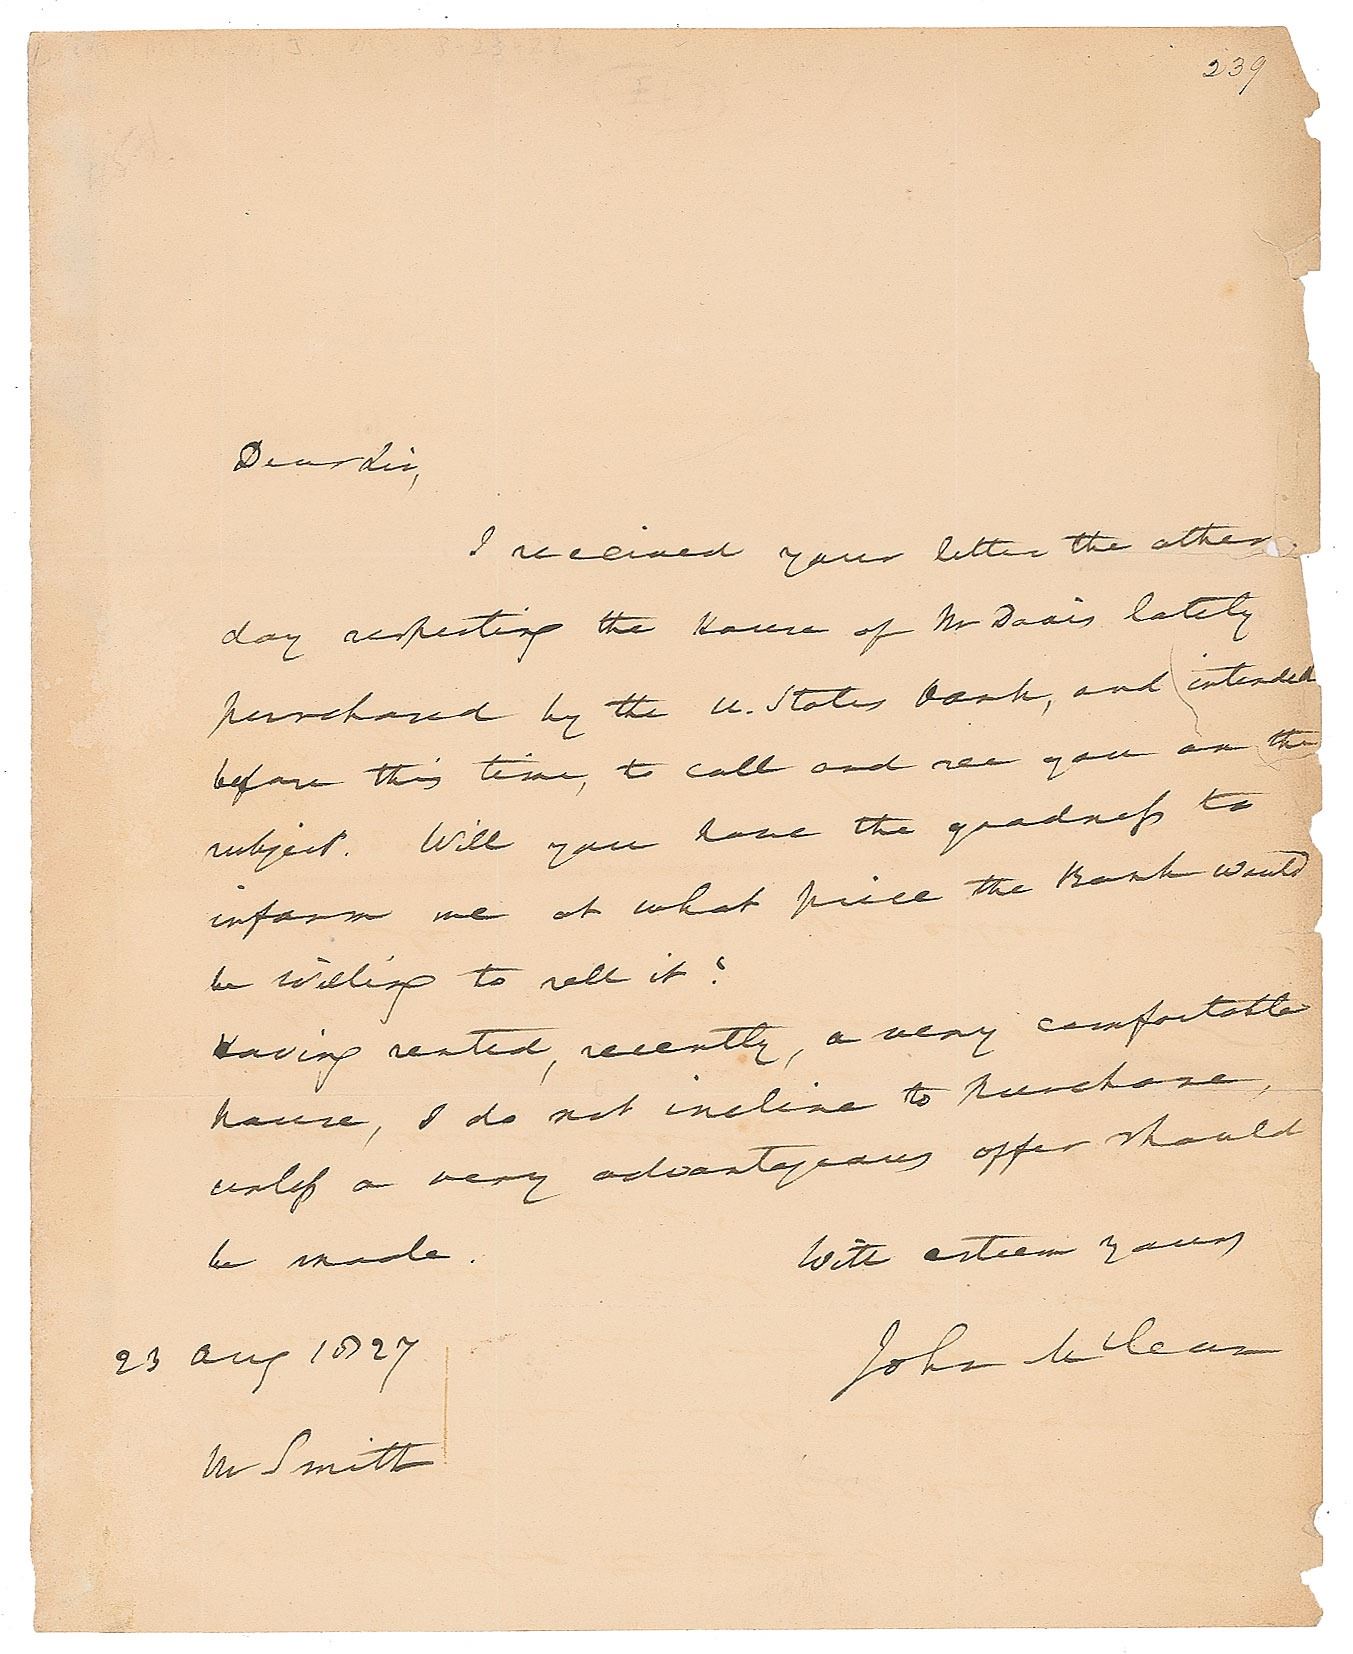 239
Dear Sir,
I received your letter the other
day respecting the house of Mr Davis lately
purchased by the U. States bank, and intended
before this time, to call and see you on the
subject. Will you have the goodness to
inform me at what price the Bank would
be willing to sell it?
Having rented, recently, a very comfortable
house, I do not incline to purchase,
unless a very advantageous offer should
be made.
With esteem yours
John McLean
23 Aug 1827
Mr Smith